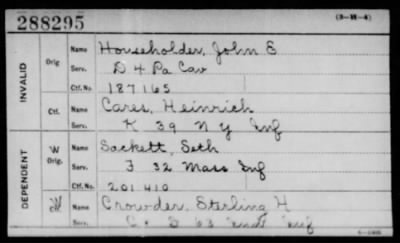 288295
(3-M-4)
INVALID
Orig
Name Householder, John E
Serv. D 4 Pa Cav
Ctf. No. 187165
Ctf.
Name Cares, Heinrich
Serv. K 39 N Y Inf
DEPENDENT
W Orig.
Name Sackett, Seth
Serv. I 32 Mass Inf
Ctf. No. 201410
W Ctf.
Name Crowder, Sterling H
63 Inf